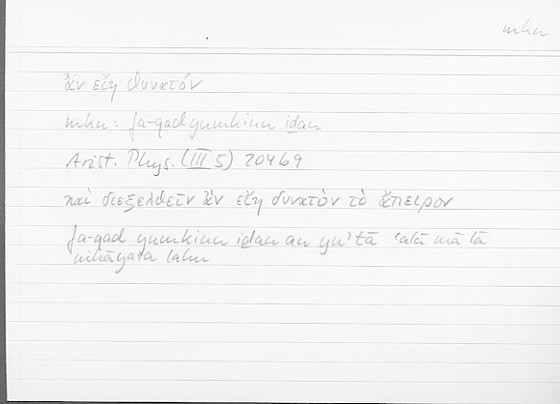 mkn
ἂν εἴη δυνατόν
mkn: fa-qad yumkinu iḏan
Arist. Phys. (III 5) 204 b 9
καὶ διεξελθεῖν ἂν εἴη δυνατὸν τὸ ἄπειρον
fa-qad yumkinu iḏan an yu'tā ʻalā mā lā
nihāyata lahu